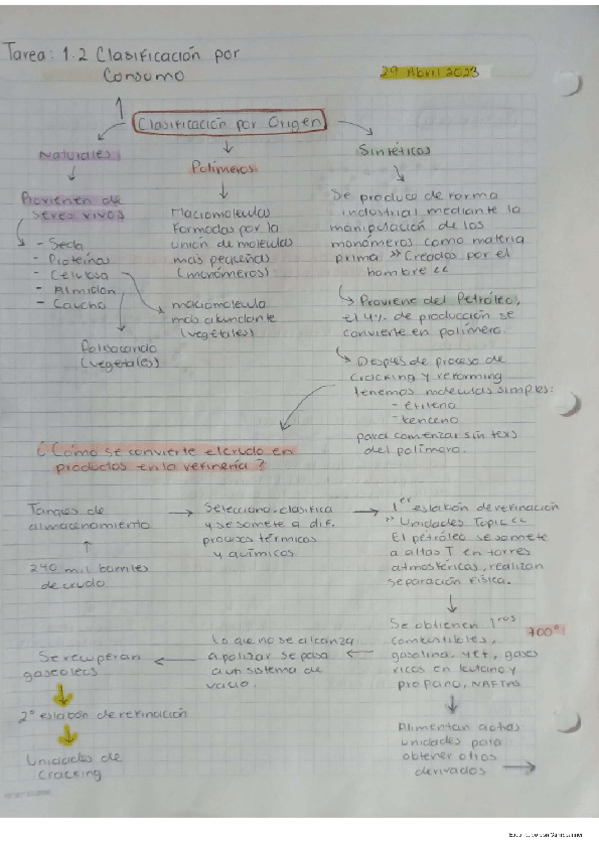 Tarea: 1.2 Clasificación por
Consumo
29 Abril 2023
Clasificación por Origen
Naturales
Provienen de
seres vivos
- Seda
- Proteínas
- Celulosa
- Almidón
- Caucho
Polisacarido
(vegetales)
Polímeros
Macromoleculas
formadas por la
unión de moleculas
más pequeñas
(monómeros)
macromolecula
más abundante
(vegetales)
Sintéticos
Se produce de forma
industrial mediante la
manipulación de los
monómeros como materia
prima >> Creados por el
hombre <<
Proviene del Petróleo,
el 4% de producción se
convierte en polímero.
Después de proceso de
cracking y reforming
tenemos moleculas simples:
- etileno
- benceno
para comenzar síntesis
del polímero.
¿Cómo se convierte el crudo en
productos en la refinería?
Tanques de
almacenamiento
240 mil barriles
de crudo
Selecciona, clasifica
y se somete a dif.
procesos térmicos
y químicos
1er eslabón de refinación
>> Unidades Topic <<
El petróleo se somete
a altas T en torres
atmosféricas, realizan
separación física.
Se obtienen 1ros
combustibles,
gasolina, yet, gases
ricos en butano y
propano, NAFTAS
700°
Lo que no se alcanza
a polizar se pasa
a un sistema de
vacío.
Se recuperan
gasoleos
2° eslabón de refinación
Unidades de
cracking
Alimentan a otras
unidades para
obtener otros
derivados